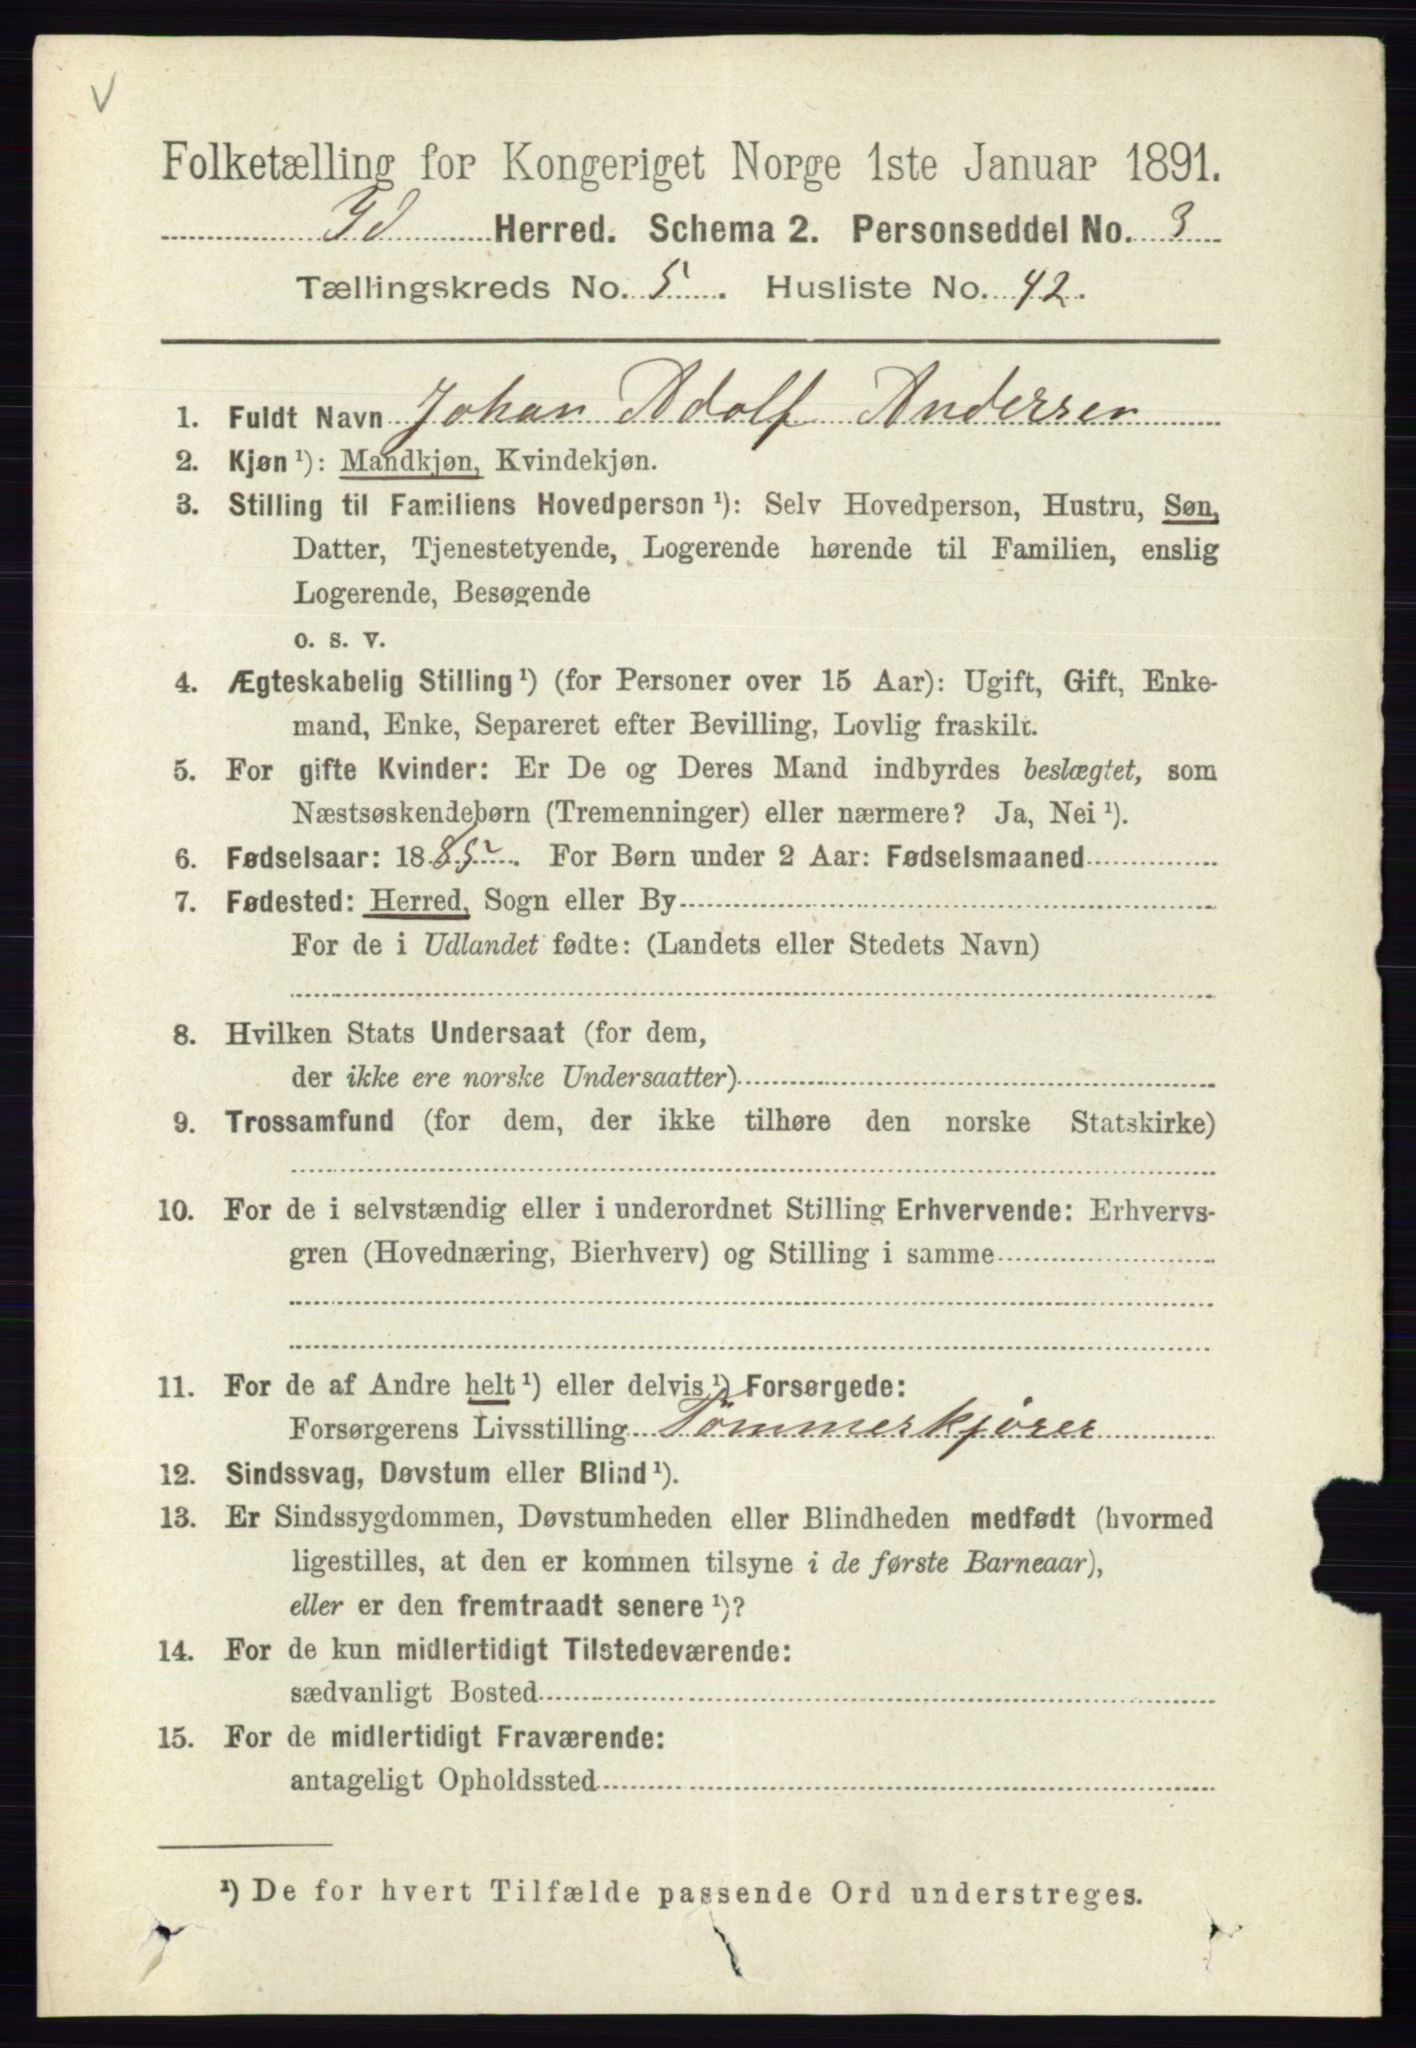 V
Folketælling for Kongeriget Norge 1ste Januar 1891.
Id Herred. Schema 2. Personseddel No. 3
Tællingskreds No. 5. Husliste No. 42.
1. Fuldt Navn Johan Adolf Andersen
2. Kjøn ¹): Mandkjøn, Kvindekjøn.
3. Stilling til Familiens Hovedperson ¹): Selv Hovedperson, Hustru, Søn,
Datter, Tjenestetyende, Logerende hørende til Familien, enslig
Logerende, Besøgende
o. s. v.
4. Ægteskabelig Stilling ¹) (for Personer over 15 Aar): Ugift, Gift, Enke-
mand, Enke, Separeret efter Bevilling, Lovlig fraskilt.
5. For gifte Kvinder: Er De og Deres Mand indbyrdes beslægtet, som
Næstsøskendebørn (Tremenninger) eller nærmere? Ja, Nei ¹).
6. Fødselsaar: 1885. For Børn under 2 Aar: Fødselsmaaned
7. Fødested: Herred, Sogn eller By
For de i Udlandet fødte: (Landets eller Stedets Navn)
8. Hvilken Stats Undersaat (for dem,
der ikke ere norske Undersaatter)
9. Trossamfund (for dem, der ikke tilhøre den norske Statskirke)
10. For de i selvstændig eller i underordnet Stilling Erhvervende: Erhvervs-
gren (Hovednæring, Bierhverv) og Stilling i samme
11. For de af Andre helt ¹) eller delvis ¹) Forsørgede:
Forsørgerens Livsstilling Tömmerkjörer
12. Sindssvag, Døvstum eller Blind ¹).
13. Er Sindssygdommen, Døvstumheden eller Blindheden medfødt (hvormed
ligestilles, at den er kommen tilsyne i de første Barneaar),
eller er den fremtraadt senere ¹)?
14. For de kun midlertidigt Tilstedeværende:
sædvanligt Bosted
15. For de midlertidigt Fraværende:
antageligt Opholdssted
¹) De for hvert Tilfælde passende Ord understreges.